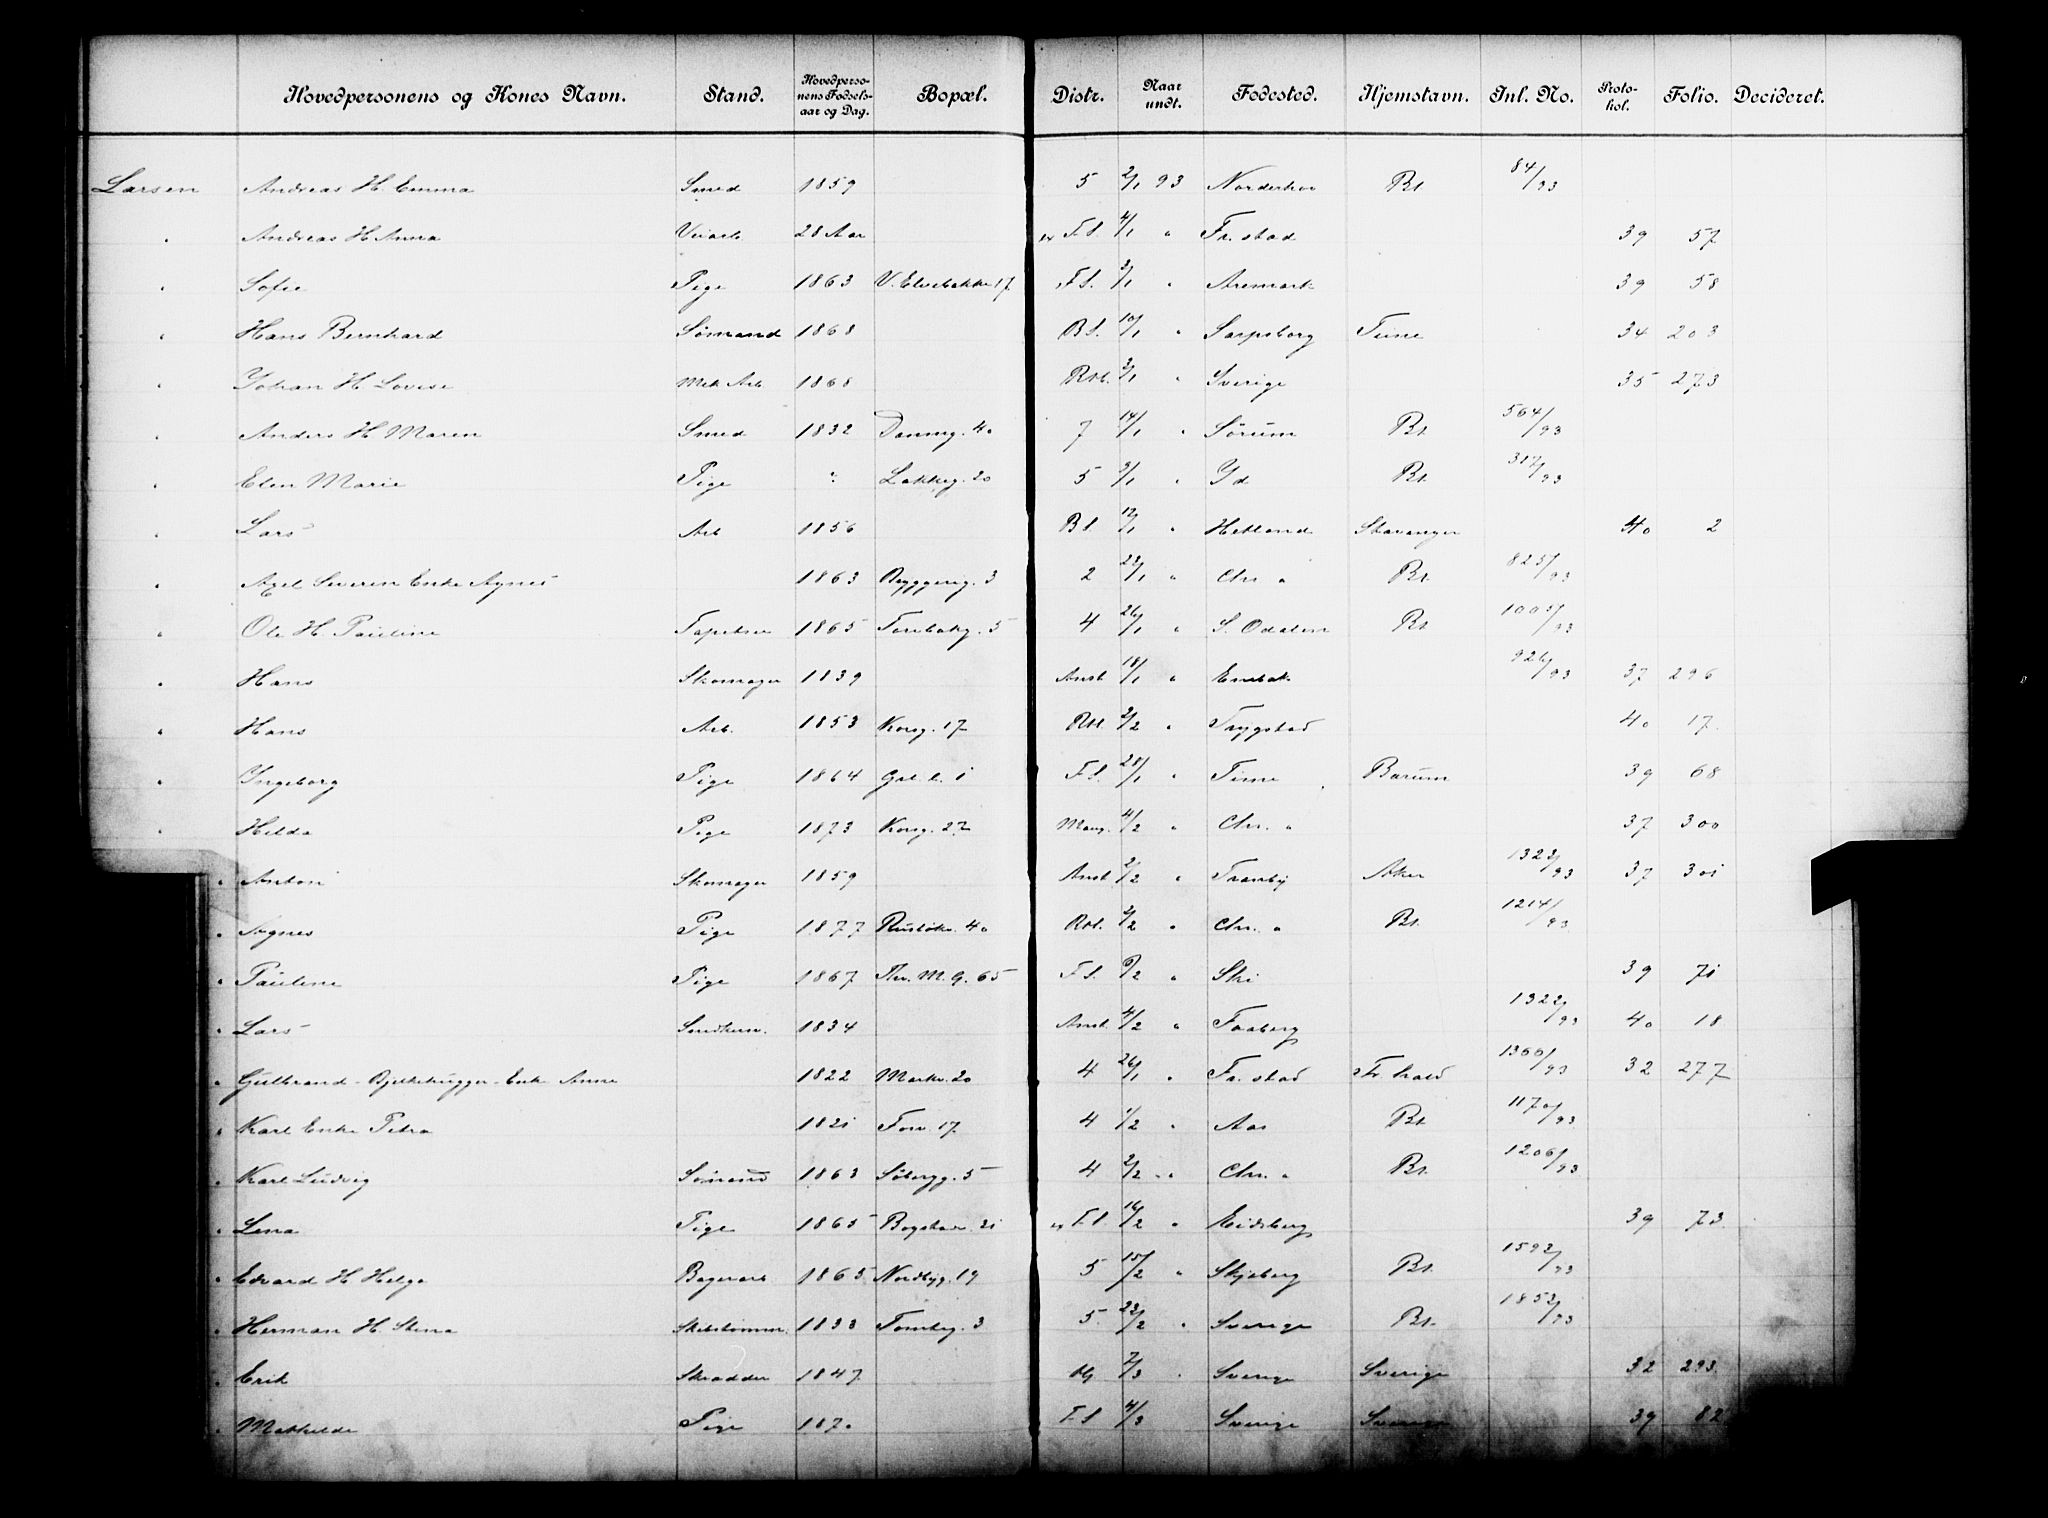 Hovedpersonens og Kones Navn. Stand. Hovedpersonens Fødselsaar og Dag. Bopæl. Distr. Naar undt. Fødested. Hjemstavn. Inl. No. Protokol. Folio. Decideret.
Larsen Andreas H. Emma Smed 1859 5 2/1 93 Norderhov Bt 84/93
" Andreas H Anna 28 Aar F.S. 4/1 " Fr.stad 39 57
" Sofie Pige 1863 V. Elvebakke 17 F.S. 3/1 " Aremark 39 58
" Hans Bernhard Sømand 1868 B.S. 10/1 " Sarpsborg Tune 34 203
" Johan H. Lovise Mek Arb 1868 Rtl. 3/1 " Sverige 35 273
" Anders H. Maren Smed 1832 Danmg. 40 7 14/1 " Sørum Bt 564/93
" Elen Marie Pige " Lakkeg. 20 5 9/1 " Id Bt. 317/93
" Lars Arb 1856 B.S. 12/1 " Hetland Stavanger 40 2
" Axel Severin Enke Agnes 1863 Bryggerig. 3 2 23/1 " Chr. a Bt. 825/93
" Ole H. Pauline Tapetser 1865 5 4 26/1 " S. Odalen Bt 1005/93
" Hans Skomager 1839 Anst 18/1 " Enebak 926/93 37 296
" Hans Arb. 1853 Korsg. 17 Rtl. 2/2 " Trygstad 40 17.
" Ingeborg Pige 1864 F.S. 28/1 " Tune Barum 39 68
" Hilda Pige 1873 Korsg. 27 Mang. 4/2 " Chr. a 37 300
" Anton Skomager 1859 Anst 2/2 " Tranby Aker 1323/93 37 301
" Agnes Pige 1877 Rusløkv. 40 Rtl. 3/2 " Chr. a Bt. 1214/93
" Pauline Pige 1867 Thv. M. G. 65 F.S. 6/2 " Ski 39 71
" Lars 1834 Anst. 4/2 " Faaberg 1322/93 40 18
" Gulbrand Bjelkehugger Enke Anne 1822 Markv. 20 4 26/1 " Fr. stad Fr. hald 1366/93 32 277
" Karl Enke Petra 1821 Fosv. 17 4 1/2 " Aas Bt 1170/93
" Karl Ludvig Sømand 1863 Søbergg. 5 4 2/2 " Chr. a Bt. 1206/93
" Lena Pige 1865 Bogstadv. 21 F.S. 16/2 " Eidsberg 39 73.
" Edvard H Helga Bagerarb 1865 Nordbyg. 19 5 15/2 " Skjeberg Bt. 1592/93
" Herman H. Stena Skibstømm. 1833 Tomteg. 3 5. 23/2 " Sverige Bt. 1852/93
" Erik Skradder 1847 7/3 " Sverige Sverige 32 293.
" Mathilde Pige 1870 F.S 4/3 Sverige Sverige 39 82